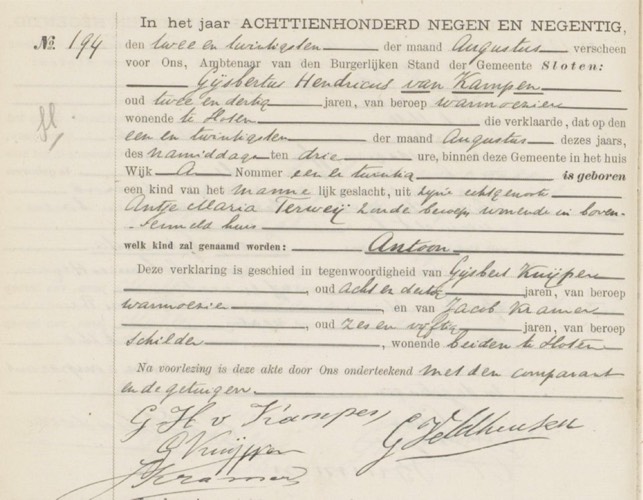 In het jaar ACHTTIENHONDERD NEGEN EN NEGENTIG,
No. 194
den twee en twintigsten der maand Augustus verscheen
voor Ons, Ambtenaar van den Burgerlijken Stand der Gemeente Sloten:
Gijsbertus Hendricus van Kampen
oud twee en dertig jaren, van beroep warmoezier
wonende te Sloten die verklaarde, dat op den
een en twintigsten der maand Augustus dezes jaars,
des namiddags ten drie ure, binnen deze Gemeente in het huis
Wijk A Nommer een en twintig is geboren
een kind van het manne lijk geslacht, uit zijne echtgenoote
Antje Maria Terweij zonder beroep wonende in boven-
gemeld huis
welk kind zal genaamd worden: Antoon
Deze verklaring is geschied in tegenwoordigheid van Gijsbert Kuijper
, oud acht en dertig jaren, van beroep
warmoezier, en van Jacob Kramer
, oud zes en vijftig jaren, van beroep
schilder, wonende beiden te Sloten
Na voorlezing is deze akte door Ons onderteekend met den comparant
en de getuigen.
G H v Kampen
G Veldhuisen
G Kuijper
J Kramer